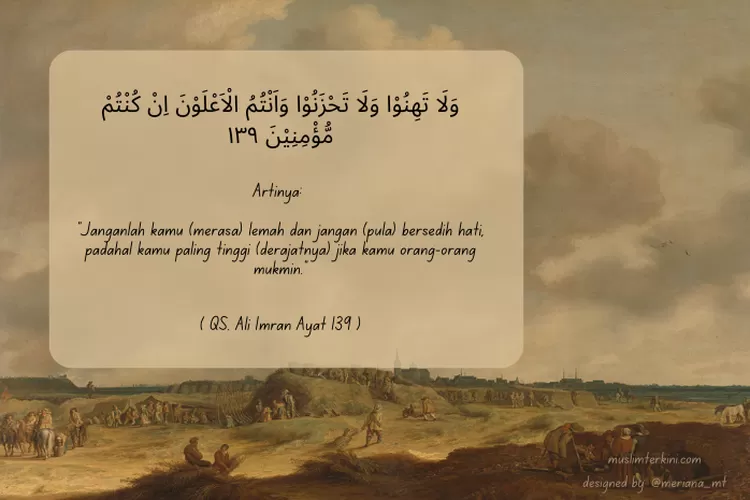 وَلَا تَهِنُوْا وَلَا تَحْزَنُوْا وَاَنْتُمُ الْاَعْلَوْنَ اِنْ كُنْتُمْ
مُّؤْمِنِيْنَ ١٣٩
Artinya:
"Janganlah kamu (merasa) lemah dan jangan (pula) bersedih hati,
padahal kamu paling tinggi (derajatnya) jika kamu orang-orang
mukmin."
( QS. Ali Imran Ayat 139 )
muslimterkini.com
designed by @meriana_mt